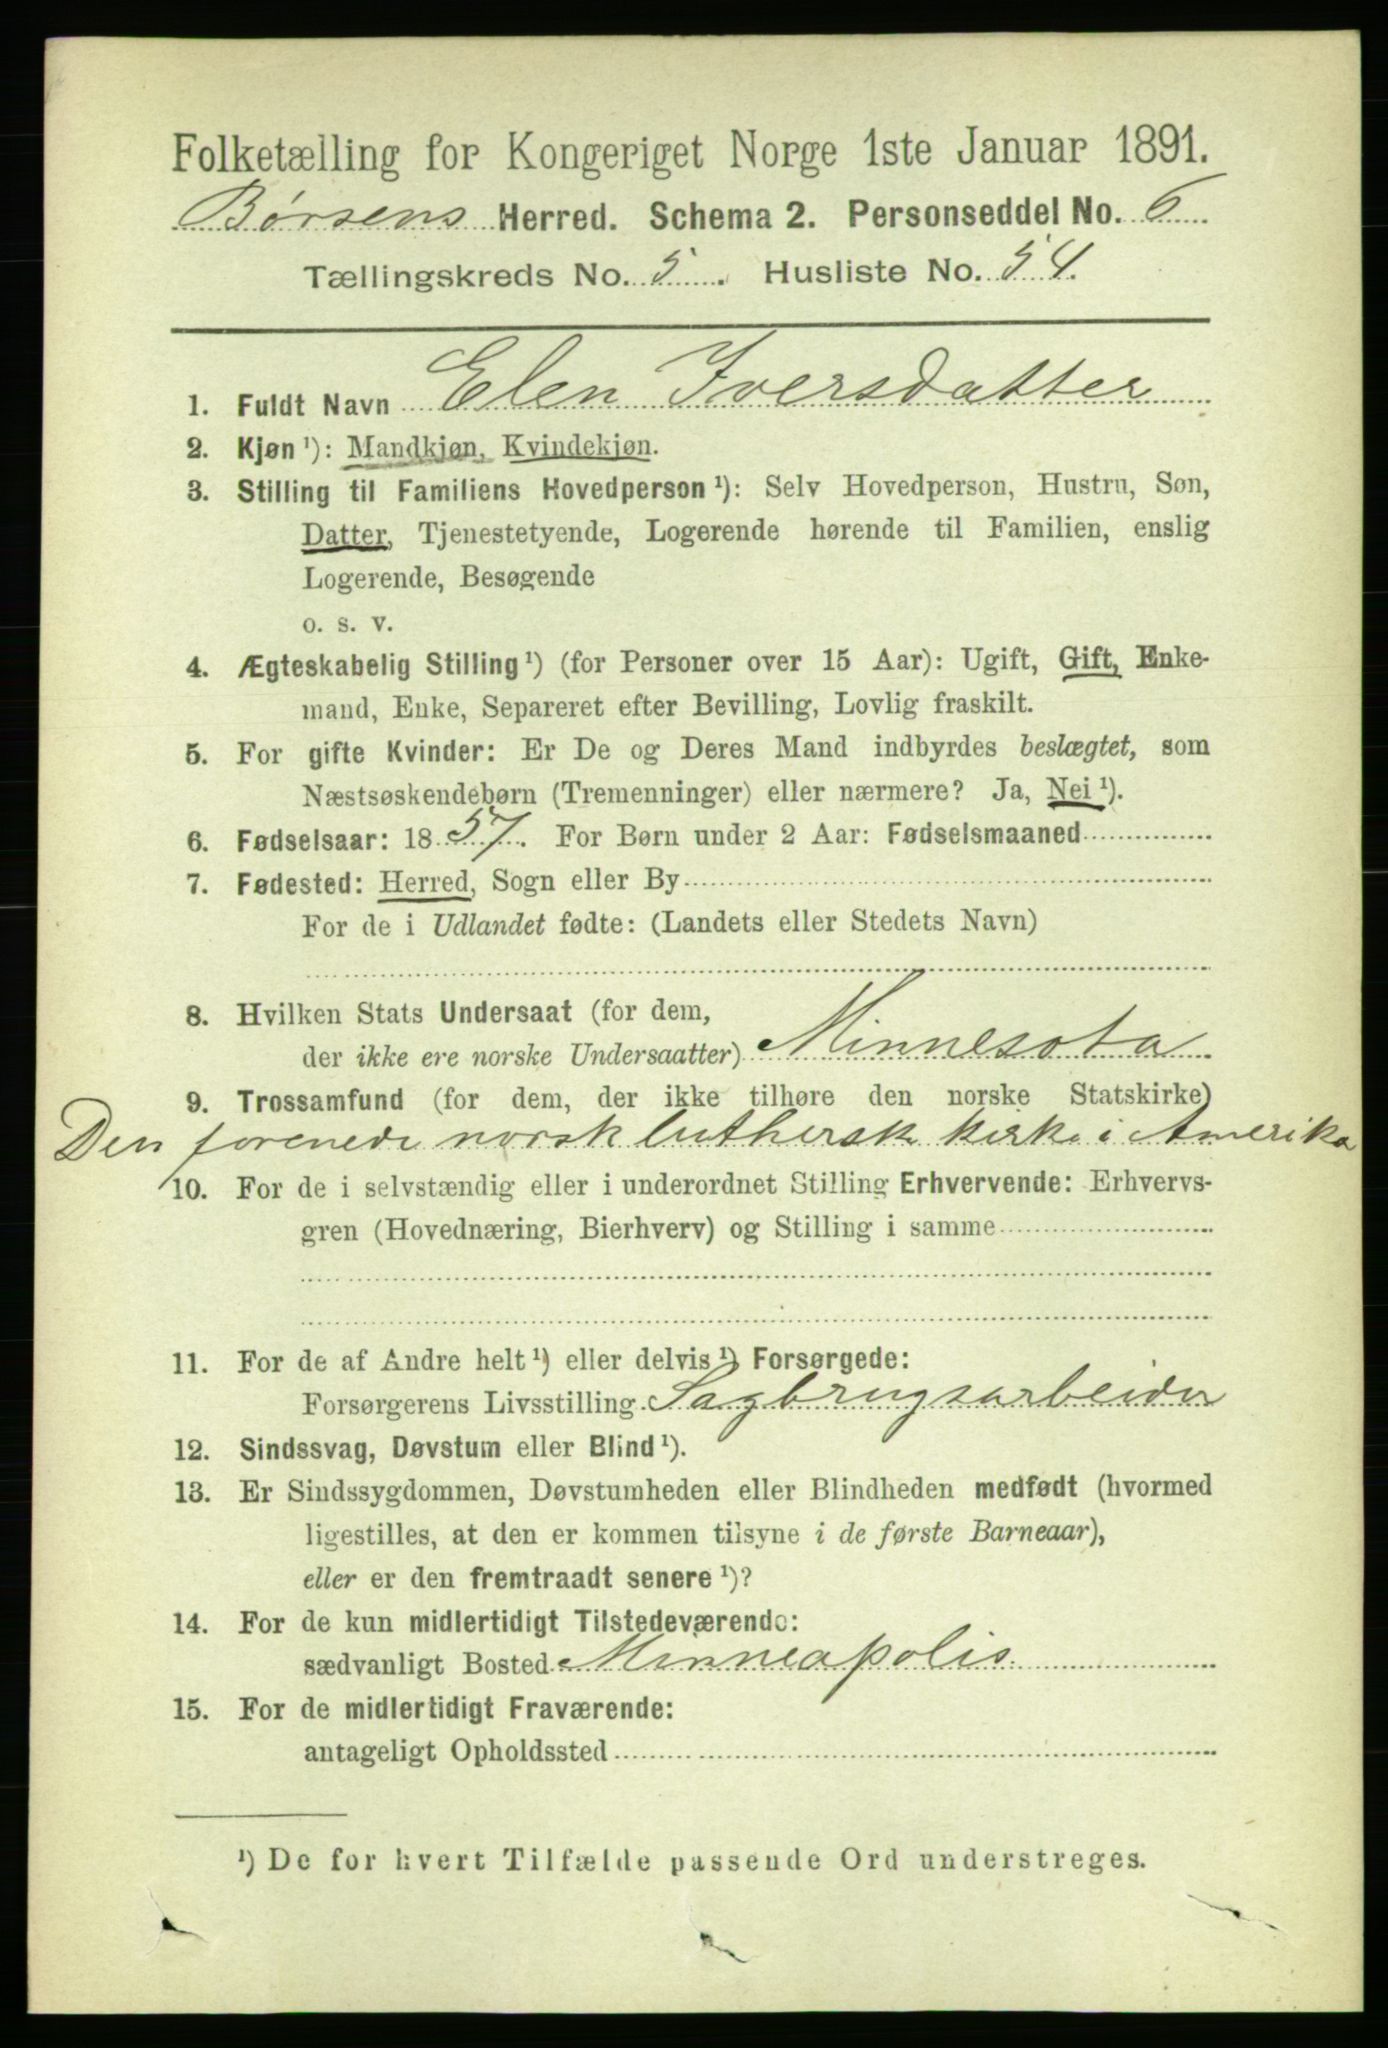 Folketælling for Kongeriget Norge 1ste Januar 1891.
Børsens Herred. Schema 2. Personseddel No. 6
Tællingskreds No. 5. Husliste No. 54.
1. Fuldt Navn Elen Iversdatter
2. Kjøn ¹): Mandkjøn, Kvindekjøn.
3. Stilling til Familiens Hovedperson ¹): Selv Hovedperson, Hustru, Søn,
Datter, Tjenestetyende, Logerende hørende til Familien, enslig
Logerende, Besøgende
o. s. v.
4. Ægteskabelig Stilling ¹) (for Personer over 15 Aar): Ugift, Gift, Enke-
mand, Enke, Separeret efter Bevilling, Lovlig fraskilt.
5. For gifte Kvinder: Er De og Deres Mand indbyrdes beslægtet, som
Næstsøskendebørn (Tremenninger) eller nærmere? Ja, Nei ¹).
6. Fødselsaar: 1857. For Børn under 2 Aar: Fødselsmaaned
7. Fødested: Herred, Sogn eller By
For de i Udlandet fødte: (Landets eller Stedets Navn)
8. Hvilken Stats Undersaat (for dem,
der ikke ere norske Undersaatter) Minnesota
9. Trossamfund (for dem, der ikke tilhøre den norske Statskirke)
Den forenede norsk luthersk kirke i Amerika
10. For de i selvstændig eller i underordnet Stilling Erhvervende: Erhvervs-
gren (Hovednæring, Bierhverv) og Stilling i samme
11. For de af Andre helt ¹) eller delvis ¹) Forsørgede:
Forsørgerens Livsstilling Sagbrugsarbeider
12. Sindssvag, Døvstum eller Blind ¹).
13. Er Sindssygdommen, Døvstumheden eller Blindheden medfødt (hvormed
ligestilles, at den er kommen tilsyne i de første Barneaar),
eller er den fremtraadt senere ¹)?
14. For de kun midlertidigt Tilstedeværende:
sædvanligt Bosted Minneapolis.
15. For de midlertidigt Fraværende:
antageligt Opholdssted
¹) De for hvert Tilfælde passende Ord understreges.